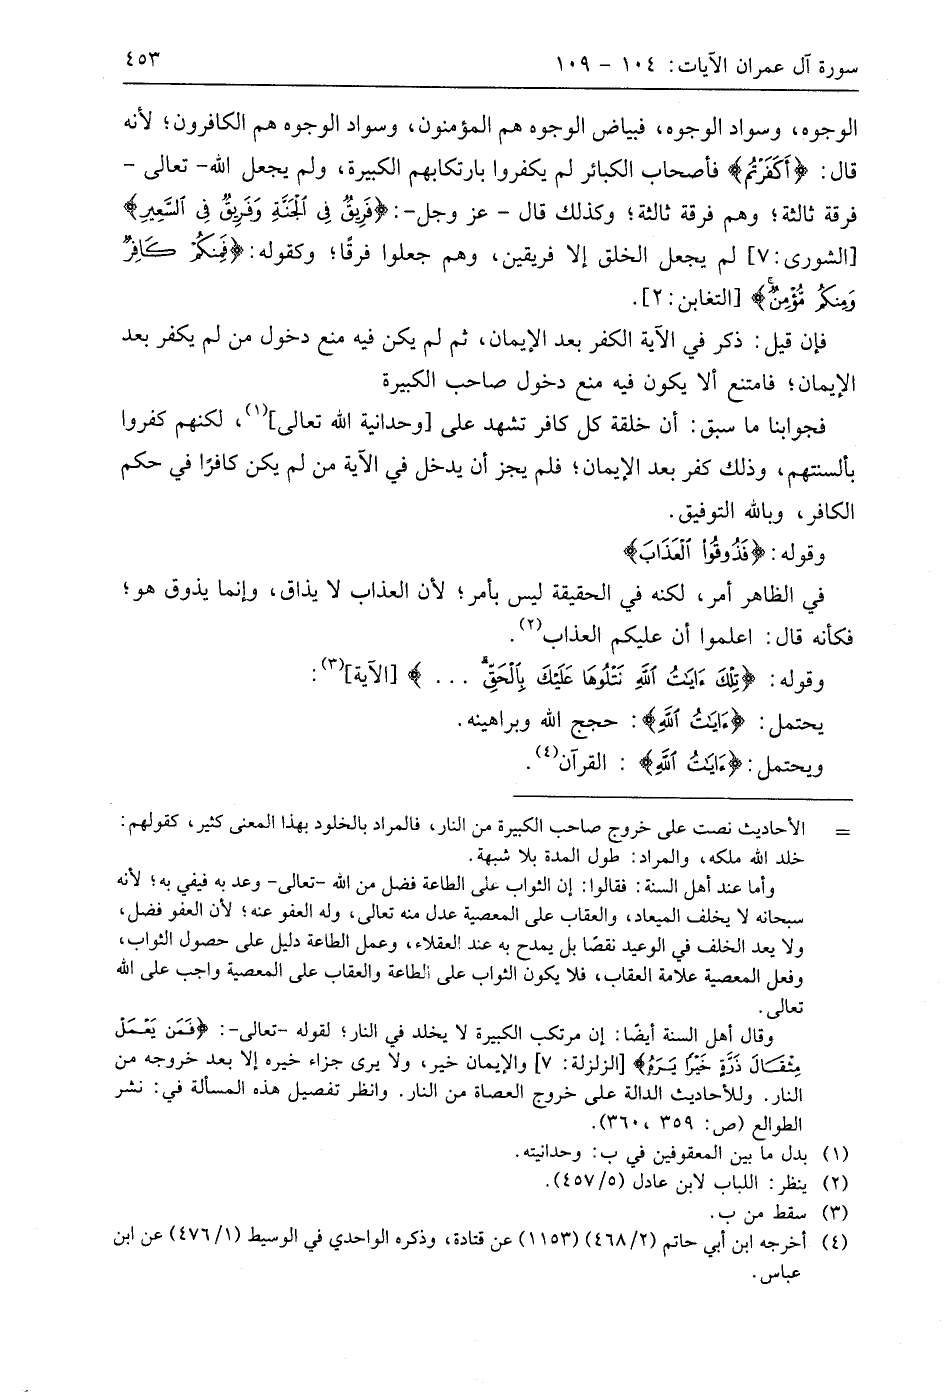 سورة آل عمران الآيات: ١٠٤ - ١٠٩
٤٥٣
الوجوه، وسواد الوجوه، فبياض الوجوه هم المؤمنون، وسواد الوجوه هم الكافرون؛ لأنه
قال: ﴿أَكَفَرْتُم﴾ فأصحاب الكبائر لم يكفروا بارتكابهم الكبيرة، ولم يجعل الله- تعالى -
فرقة ثالثة؛ وهم فرقة ثالثة؛ وكذلك قال - عز وجل-: ﴿فَرِيقٌ فِي ٱلْجَنَّةِ وَفَرِيقٌ فِي ٱلسَّعِيرِ﴾
[الشورى:٧] لم يجعل الخلق إلا فريقين، وهم جعلوا فرقًا؛ وكقوله: ﴿فَمِنكُمْ كَافِرٌ
وَمِنكُم مُّؤْمِنٌۚ﴾ [التغابن:٢].
فإن قيل: ذكر في الآية الكفر بعد الإيمان، ثم لم يكن فيه منع دخول من لم يكفر بعد
الإيمان؛ فامتنع ألا يكون فيه منع دخول صاحب الكبيرة
فجوابنا ما سبق: أن خلقة كل كافر تشهد على [وحدانية الله تعالى](١)، لكنهم كفروا
بألسنتهم، وذلك كفر بعد الإيمان؛ فلم يجز أن يدخل في الآية من لم يكن كافرًا في حكم
الكافر، وبالله التوفيق.
وقوله: ﴿فَذُوقُوا۟ ٱلْعَذَابَ﴾
في الظاهر أمر، لكنه في الحقيقة ليس بأمر؛ لأن العذاب لا يذاق، وإنما يذوق هو؛
فكأنه قال: اعلموا أن عليكم العذاب(٢).
وقوله: ﴿تِلْكَ ءَايَٰتُ ٱللَّهِ نَتْلُوهَا عَلَيْكَ بِٱلْحَقِّۗ ...﴾ [الآية](٣):
يحتمل: ﴿ءَايَٰتُ ٱللَّهِ﴾: حجج الله وبراهينه.
ويحتمل: ﴿ءَايَٰتُ ٱللَّهِ﴾ : القرآن(٤).
= الأحاديث نصت على خروج صاحب الكبيرة من النار، فالمراد بالخلود بهذا المعنى كثير، كقولهم:
خلد الله ملكه، والمراد: طول المدة بلا شبهة.
وأما عند أهل السنة: فقالوا: إن الثواب على الطاعة فضل من الله -تعالى- وعد به فيفي به؛ لأنه
سبحانه لا يخلف الميعاد، والعقاب على المعصية عدل منه تعالى، وله العفو عنه؛ لأن العفو فضل،
ولا يعد الخلف في الوعيد نقصًا بل يمدح به عند العقلاء، وعمل الطاعة دليل على حصول الثواب،
وفعل المعصية علامة العقاب، فلا يكون الثواب على الطاعة والعقاب على المعصية واجب على الله
تعالى.
وقال أهل السنة أيضًا: إن مرتكب الكبيرة لا يخلد في النار؛ لقوله -تعالى-: ﴿فَمَن يَعْمَلْ
مِثْقَالَ ذَرَّةٍ خَيْرًا يَرَهُ﴾ [الزلزلة: ٧] والإيمان خير، ولا يرى جزاء خيره إلا بعد خروجه من
النار. وللأحاديث الدالة على خروج العصاة من النار. وانظر تفصيل هذه المسألة في: نشر
الطوالع (ص: ٣٥٩ ،٣٦٠).
(١) بدل ما بين المعقوفين في ب: وحدانيته.
(٢) ينظر: اللباب لابن عادل (٤٥٧/٥).
(٣) سقط من ب.
(٤) أخرجه ابن أبي حاتم (٤٦٨/٢) (١١٥٣) عن قتادة، وذكره الواحدي في الوسيط (٤٧٦/١) عن ابن
عباس.